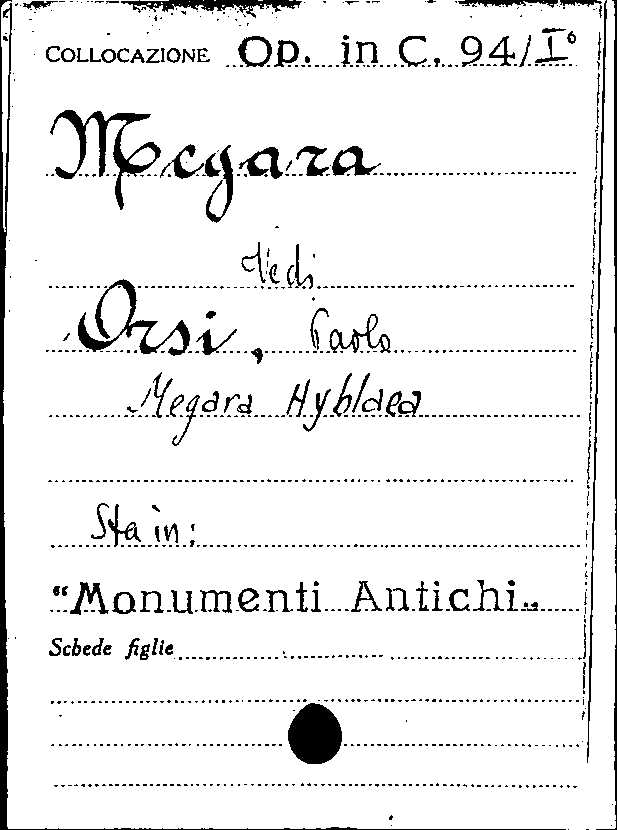 COLLOCAZIONE Op. in C. 94/I°
Megara
Vedi
Orsi, Paolo
Megara Hyblaea
Sta in:
"Monumenti Antichi„
Schede figlie